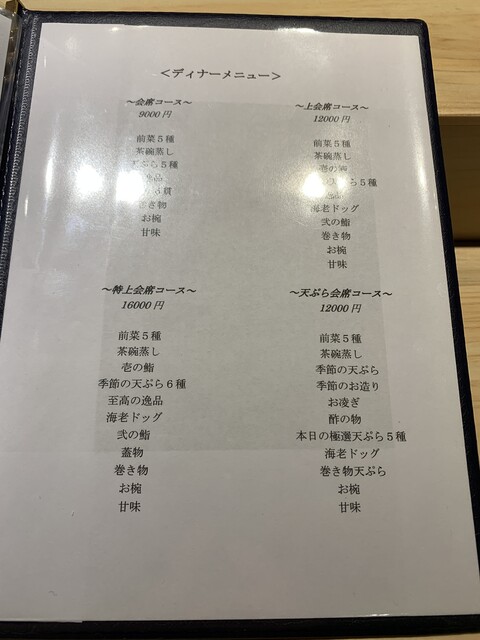 ＜ディナーメニュー＞
～会席コース～
9000 円
前菜５種
茶碗蒸し
天ぷら５種
逸品
貫
巻き物
お椀
甘味
～上会席コース～
12000 円
前菜５種
茶碗蒸し
壱の鮨
天ぷら５種
海老ドッグ
弐の鮨
巻き物
お椀
甘味
～特上会席コース～
16000 円
前菜５種
茶碗蒸し
壱の鮨
季節の天ぷら６種
至高の逸品
海老ドッグ
弐の鮨
蓋物
巻き物
お椀
甘味
～天ぷら会席コース～
12000 円
前菜５種
茶碗蒸し
季節の天ぷら
季節のお造り
お凌ぎ
酢の物
本日の極選天ぷら５種
海老ドッグ
巻き物天ぷら
お椀
甘味